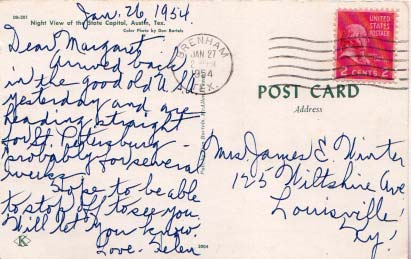 Jan. 26 1954.
DB-201
Night View of the State Capitol, Austin, Tex.
Color Photo by Don Bartels
Dear Margaret
Arrived back
in the good old U.S.A.
yesterday and are
heading straight
for St. Petersburg -
probably for several
weeks.
Hope to be able
to stop off to see you.
Will let you know.
Love - Helen
K
2004
BRENHAM
JAN 27
1954
TEX.
UNITED STATES
POSTAGE
2 CENTS 2
POST CARD
Address
Mrs. James E. Winter
125 Wiltshire Ave
Louisville
Ky.